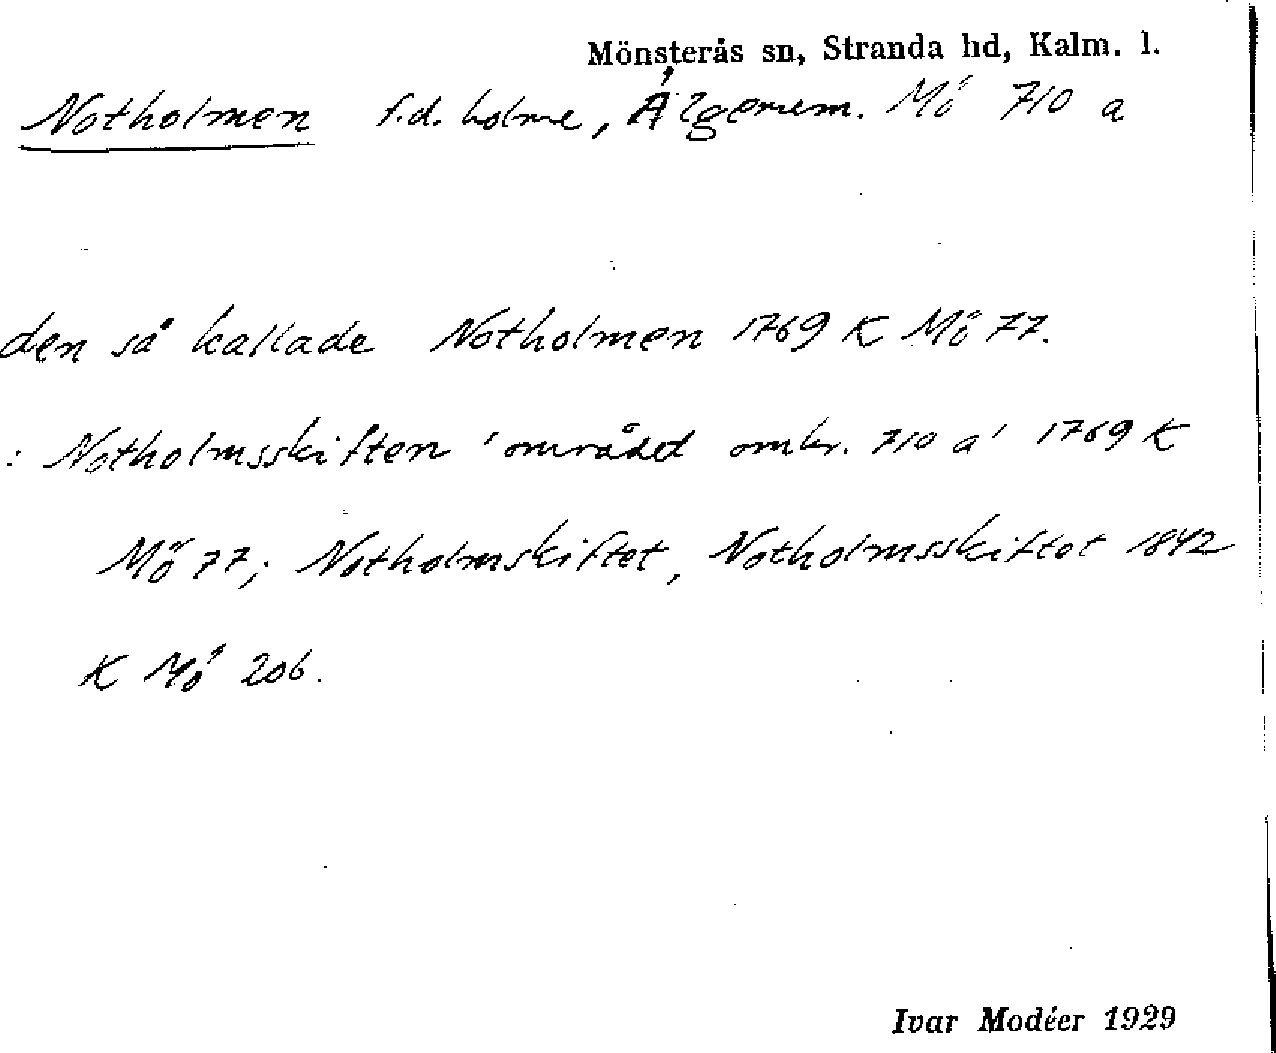 Mönsterås sn, Stranda hd, Kalm. l.
Notholmen f.d. holme, Älgerum. Mö 710 a
den så kallade Notholmen 1769 K Mö 77.
: Notholmsskiften 'området omkr. 710 a' 1769 K
Mö 77; Notholmskiftet, Notholmsskiftet 1842
K Mö 206.
Ivar Modéer 1929